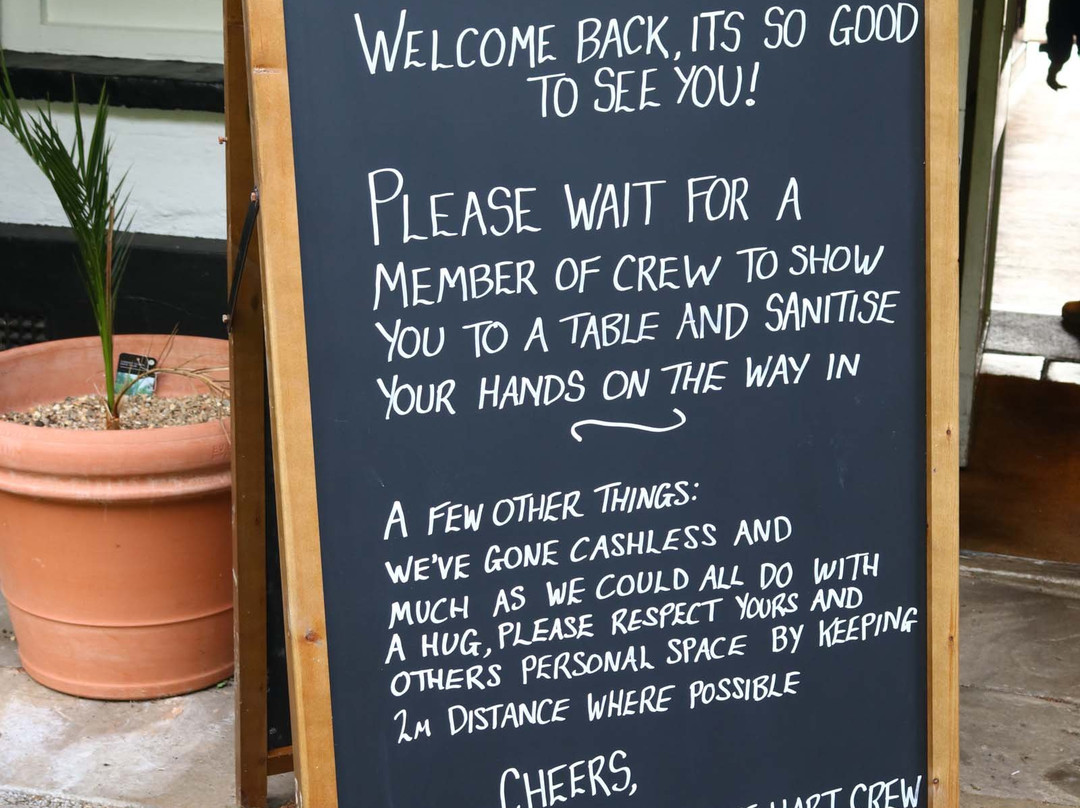 WELCOME BACK, ITS SO GOOD
TO SEE YOU!
PLEASE WAIT FOR A
MEMBER OF CREW TO SHOW
YOU TO A TABLE AND SANITISE
YOUR HANDS ON THE WAY IN
A FEW OTHER THINGS:
WE'VE GONE CASHLESS AND
MUCH AS WE COULD ALL DO WITH
A HUG, PLEASE RESPECT YOURS AND
OTHERS PERSONAL SPACE BY KEEPING
2M DISTANCE WHERE POSSIBLE
CHEERS,
HART CREW